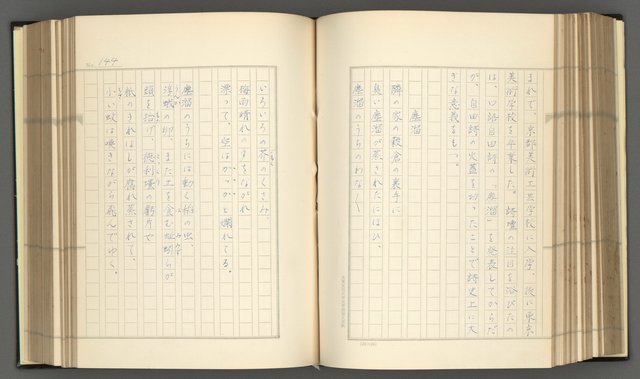 まれで、京都美術工芸学校に入学、後に東京
美術学校を卒業した。詩壇の注目を浴びたの
は、口語自由詩の「塵溜」を発表してからだ
が、自由詩の火蓋を切ったことで詩史上に大
きな意義をもつ。
塵溜
隣の家の穀倉の裏手に
臭い塵溜が蒸されたにほひ、
塵溜のうちのわな〳〵
いろいろの芥のくさみ、
梅雨晴れの夕をながれ
漂って、空はかっかと爛れてる。
塵溜のうちには動く稲の虫、
浮蛾の卵、また土を食む蚯蚓らが
頭を擡げ、徳利壜の虧片や
紙のきれはしが腐れ蒸されて、
小い蚊は喚きながら飛んでゆく。
No. 144